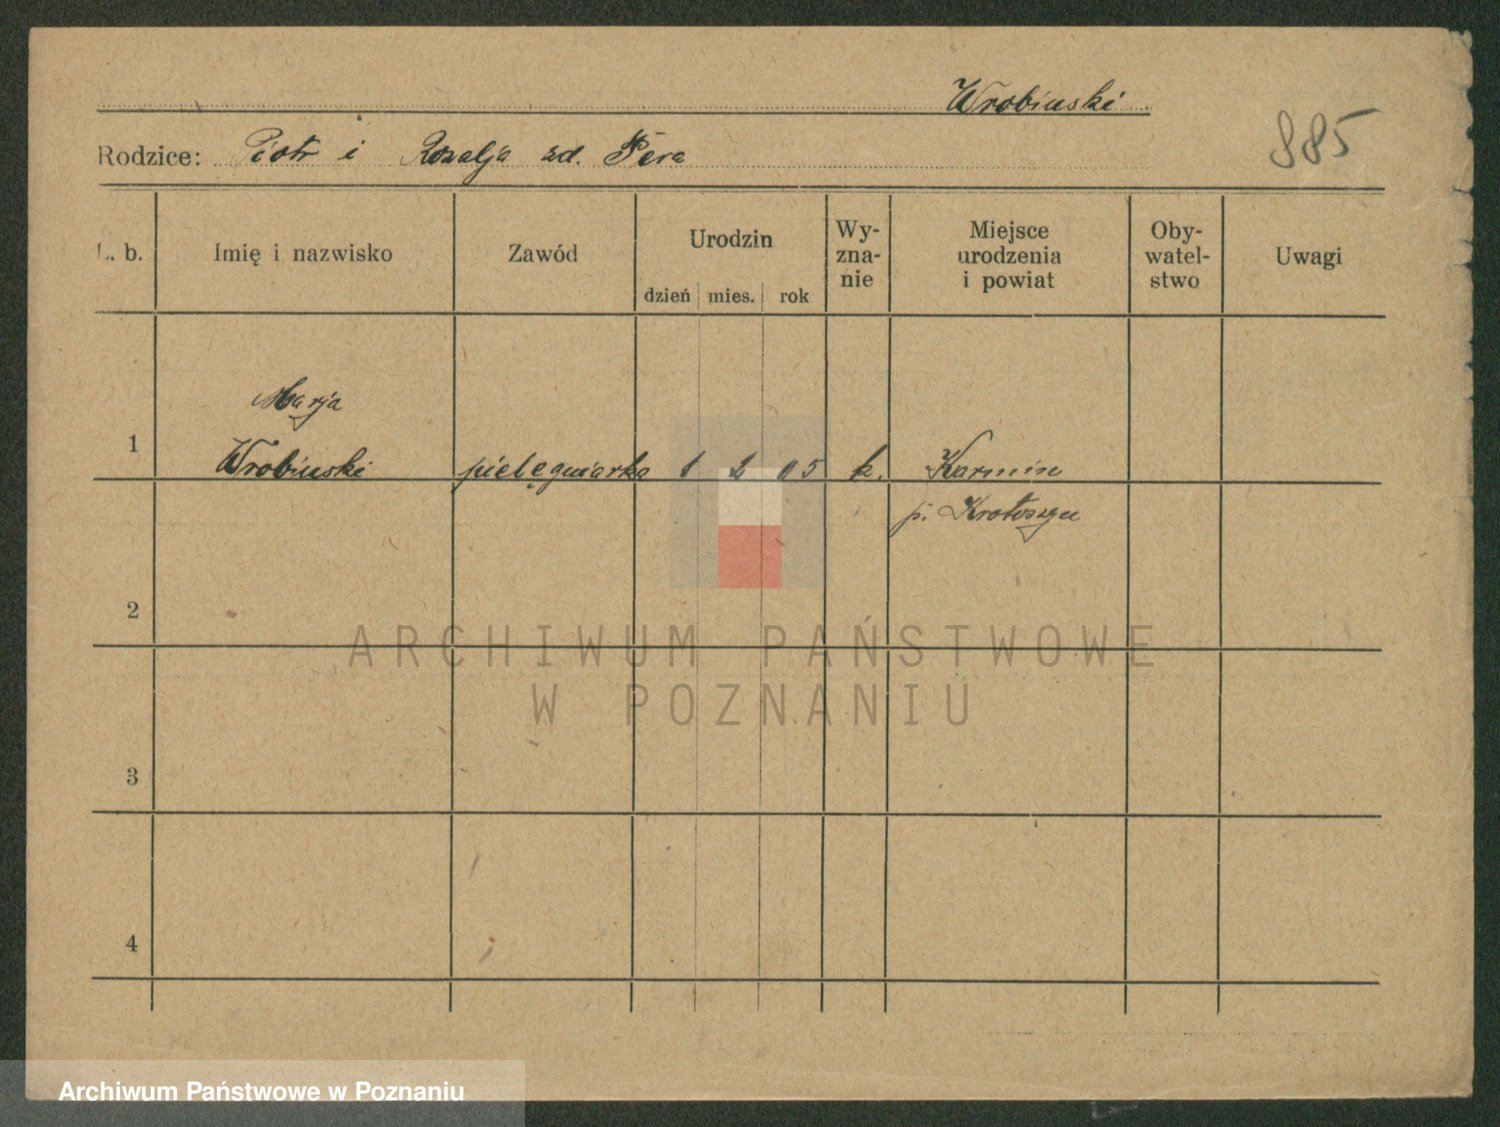 Wrobinski
885
Rodzice: Piotr i Rozalja zd. Pera
L. b.
Imię i nazwisko
Zawód
Urodzin
dzień
mies.
rok
Wy-
zna-
nie
Miejsce
urodzenia
i powiat
Oby-
watel-
stwo
Uwagi
Marja
1
Wrobinski
pielęgniarka
1
2
05
k.
Karmin
p. Krotoszyn
2
3
4
ARCHIWUM PAŃSTWOWE
W POZNANIU
Archiwum Państwowe w Poznaniu